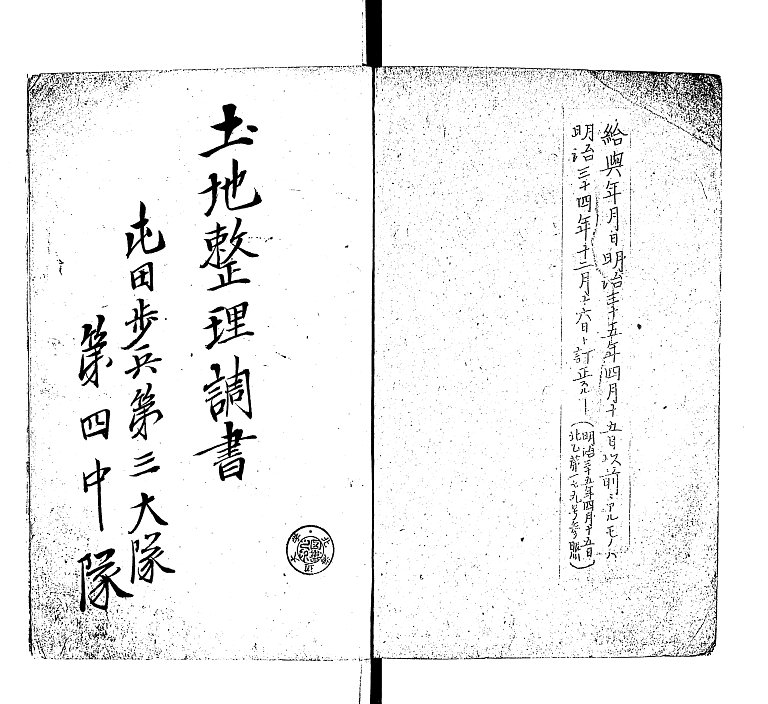 給與年月日明治三十五年四月十五日以前ニアルモノハ
明治三十四年十二月十六日ト訂正ス
(明治三十五年四月十五日
北乙第一七九号参照)
土地整理調書
屯田歩兵第三大隊
第四中隊